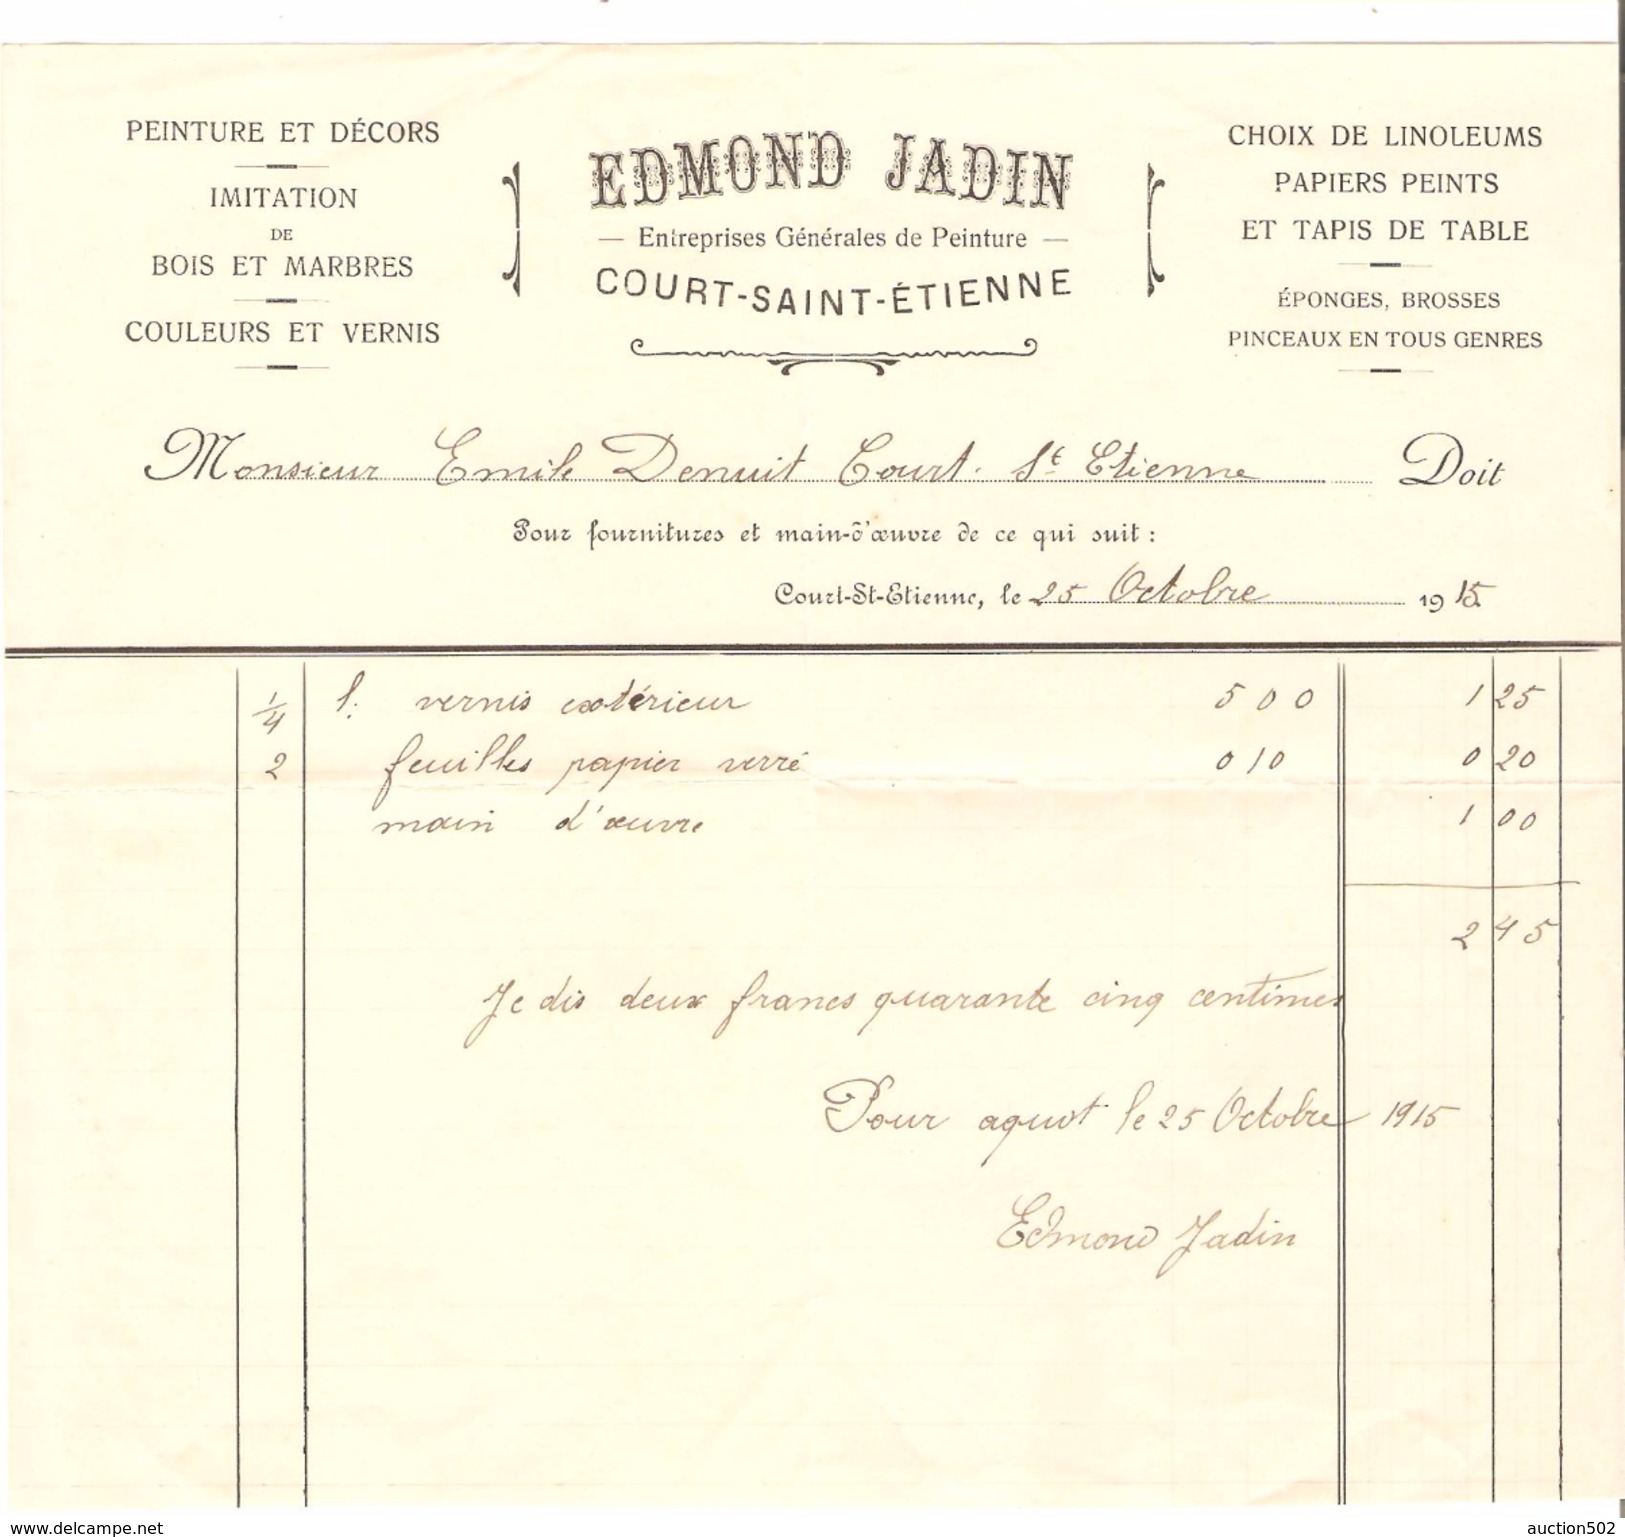 PEINTURE ET DÉCORS
IMITATION
DE
BOIS ET MARBRES
COULEURS ET VERNIS
EDMOND JADIN
— Entreprises Générales de Peinture —
COURT-SAINT-ÉTIENNE
CHOIX DE LINOLEUMS
PAPIERS PEINTS
ET TAPIS DE TABLE
ÉPONGES, BROSSES
PINCEAUX EN TOUS GENRES
Monsieur Emile Denuit Court. St Etienne Doit
Pour fournitures et main-d'œuvre de ce qui suit :
Court-St-Etienne, le 25 Octobre 1915
1/4 l. vernis extérieur 500 1 25
2 feuilles papier verré 010 0 20
main d'œuvre 1 00
2 45
Je dis deux francs quarante cinq centimes
Pour aquit le 25 Octobre 1915
Edmond Jadin
www.delcampe.net
auction502